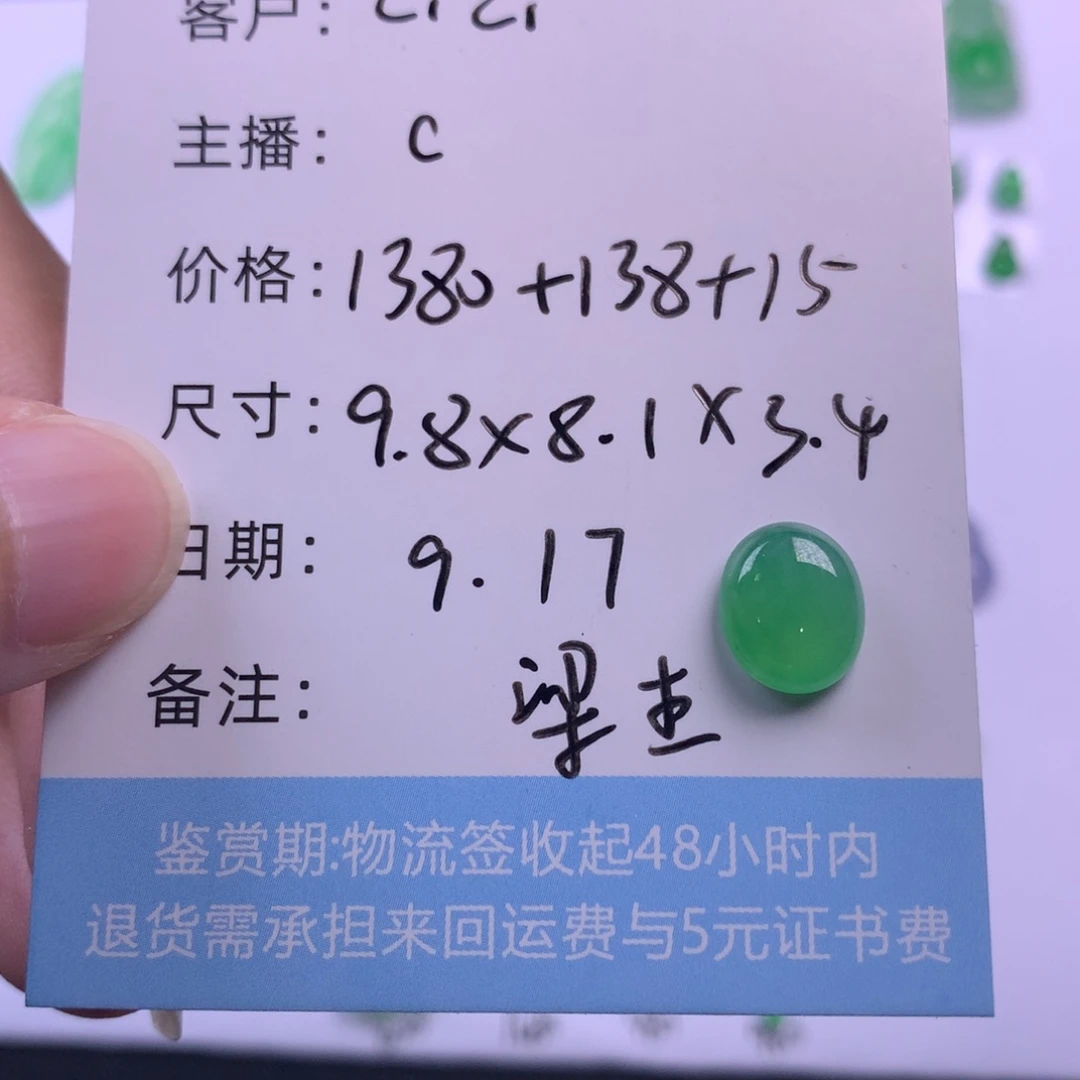 客户：
主播： C
价格：1380+138+15
尺寸：9.8×8.1×3.4
日期： 9.17
备注： 梁杰
鉴赏期:物流签收起48小时内
退货需承担来回运费与5元证书费